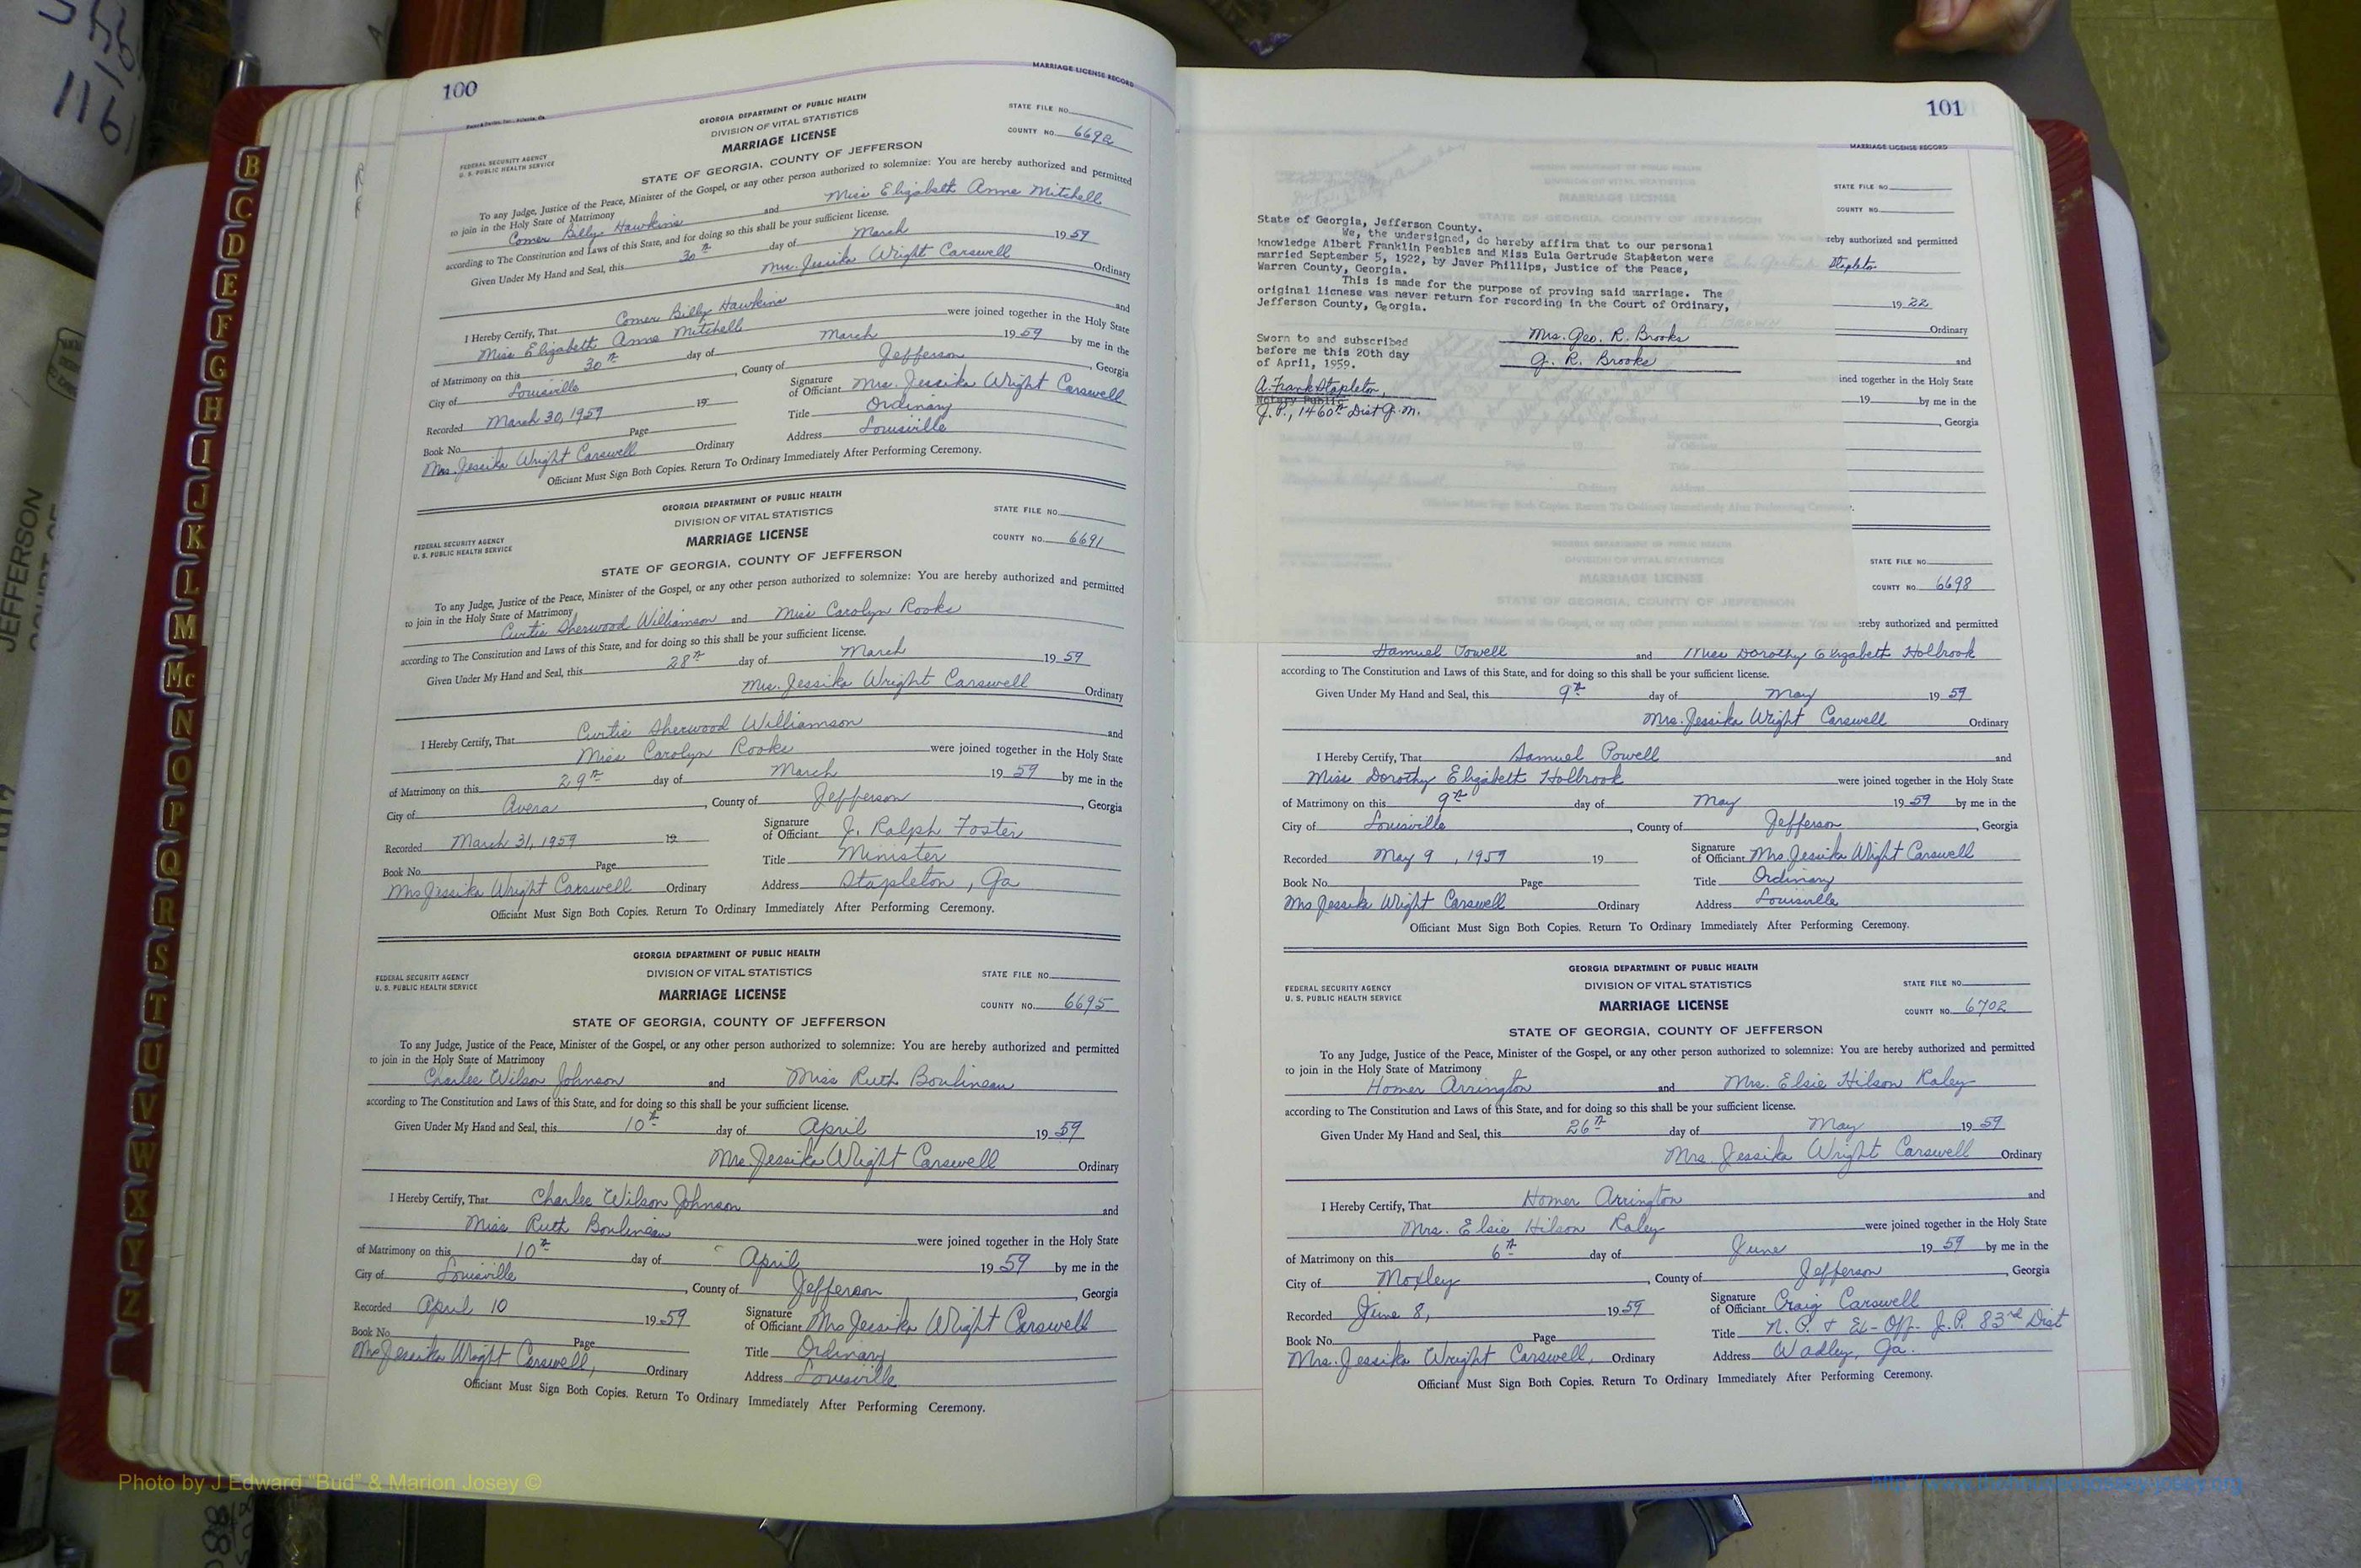 100
MARRIAGE LICENSE RECORD
GEORGIA DEPARTMENT OF PUBLIC HEALTH
DIVISION OF VITAL STATISTICS
MARRIAGE LICENSE
STATE OF GEORGIA, COUNTY OF JEFFERSON
FEDERAL SECURITY AGENCY
U. S. PUBLIC HEALTH SERVICE
STATE FILE NO.
COUNTY NO. 6692
To any Judge, Justice of the Peace, Minister of the Gospel, or any other person authorized to solemnize: You are hereby authorized and permitted
to join in the Holy State of Matrimony
Comer Billy Hawkins and Miss Elizabeth Anne Mitchell
according to The Constitution and Laws of this State, and for doing so this shall be your sufficient license.
Given Under My Hand and Seal, this 30th day of March 1959
Mrs. Jessika Wright Carswell Ordinary
I Hereby Certify, That Comer Billy Hawkins and
Miss Elizabeth Anne Mitchell were joined together in the Holy State
of Matrimony on this 30th day of March 1959 by me in the
City of Louisville, County of Jefferson, Georgia
Recorded March 30, 1959 19
Signature of Officiant Mrs. Jessika Wright Carswell
Title Ordinary
Book No. Page
Address Louisville
Mrs. Jessika Wright Carswell Ordinary
Officiant Must Sign Both Copies. Return To Ordinary Immediately After Performing Ceremony.
GEORGIA DEPARTMENT OF PUBLIC HEALTH
DIVISION OF VITAL STATISTICS
MARRIAGE LICENSE
STATE OF GEORGIA, COUNTY OF JEFFERSON
FEDERAL SECURITY AGENCY
U. S. PUBLIC HEALTH SERVICE
STATE FILE NO.
COUNTY NO. 6691
To any Judge, Justice of the Peace, Minister of the Gospel, or any other person authorized to solemnize: You are hereby authorized and permitted
to join in the Holy State of Matrimony
Curtis Sherwood Williamson and Miss Carolyn Rooks
according to The Constitution and Laws of this State, and for doing so this shall be your sufficient license.
Given Under My Hand and Seal, this 28th day of March 1959
Mrs. Jessika Wright Carswell Ordinary
I Hereby Certify, That Curtis Sherwood Williamson and
Miss Carolyn Rooks were joined together in the Holy State
of Matrimony on this 29th day of March 1959 by me in the
City of Avera, County of Jefferson, Georgia
Recorded March 31, 1959 19
Signature of Officiant J. Ralph Foster
Title Minister
Book No. Page
Address Stapleton, Ga
Mrs Jessika Wright Carswell Ordinary
Officiant Must Sign Both Copies. Return To Ordinary Immediately After Performing Ceremony.
GEORGIA DEPARTMENT OF PUBLIC HEALTH
DIVISION OF VITAL STATISTICS
MARRIAGE LICENSE
STATE OF GEORGIA, COUNTY OF JEFFERSON
FEDERAL SECURITY AGENCY
U. S. PUBLIC HEALTH SERVICE
STATE FILE NO.
COUNTY NO. 6695
To any Judge, Justice of the Peace, Minister of the Gospel, or any other person authorized to solemnize: You are hereby authorized and permitted
to join in the Holy State of Matrimony
Charles Wilson Johnson and Miss Ruth Boulineau
according to The Constitution and Laws of this State, and for doing so this shall be your sufficient license.
Given Under My Hand and Seal, this 10th day of April 1959
Mrs. Jessika Wright Carswell Ordinary
I Hereby Certify, That Charles Wilson Johnson and
Miss Ruth Boulineau were joined together in the Holy State
of Matrimony on this 10th day of April 1959 by me in the
City of Louisville, County of Jefferson, Georgia
Recorded April 10 1959
Signature of Officiant Mrs Jessika Wright Carswell
Book No. Page
Title Ordinary
Mrs Jessika Wright Carswell, Ordinary
Address Louisville
Officiant Must Sign Both Copies. Return To Ordinary Immediately After Performing Ceremony.
101
MARRIAGE LICENSE RECORD
STATE FILE NO.
COUNTY NO.
State of Georgia, Jefferson County.
We, the undersigned, do hereby affirm that to our personal
knowledge Albert Franklin Peebles and Miss Eula Gertrude Stapleton were
married September 5, 1922, by Javer Phillips, Justice of the Peace,
Warren County, Georgia.
This is made for the purpose of proving said marriage. The
original licnese was never return for recording in the Court of Ordinary,
Jefferson County, Georgia.
Sworn to and subscribed
before me this 20th day
of April, 1959.
Mrs. Geo. R. Brooks
G. R. Brooks
A. Frank Stapleton,
Notary Public
J. P., 1460th Dist G. M.
reby authorized and permitted
Stapleton
1922
Ordinary
and
ined together in the Holy State
19 by me in the
, Georgia
STATE FILE NO.
COUNTY NO. 6698
ereby authorized and permitted
Samuel Powell and Miss Dorothy Elizabeth Holbrook
according to The Constitution and Laws of this State, and for doing so this shall be your sufficient license.
Given Under My Hand and Seal, this 9th day of May 1959
Mrs. Jessika Wright Carswell Ordinary
I Hereby Certify, That Samuel Powell and
Miss Dorothy Elizabeth Holbrook were joined together in the Holy State
of Matrimony on this 9th day of May 1959 by me in the
City of Louisville, County of Jefferson, Georgia
Recorded May 9, 1959 19
Signature of Officiant Mrs Jessika Wright Carswell
Book No. Page
Title Ordinary
Mrs Jessika Wright Carswell Ordinary
Address Louisville
Officiant Must Sign Both Copies. Return To Ordinary Immediately After Performing Ceremony.
GEORGIA DEPARTMENT OF PUBLIC HEALTH
DIVISION OF VITAL STATISTICS
MARRIAGE LICENSE
STATE OF GEORGIA, COUNTY OF JEFFERSON
FEDERAL SECURITY AGENCY
U. S. PUBLIC HEALTH SERVICE
STATE FILE NO.
COUNTY NO. 6702
To any Judge, Justice of the Peace, Minister of the Gospel, or any other person authorized to solemnize: You are hereby authorized and permitted
to join in the Holy State of Matrimony
Homer Arrington and Mrs. Elsie Hilson Raley
according to The Constitution and Laws of this State, and for doing so this shall be your sufficient license.
Given Under My Hand and Seal, this 26th day of May 1959
Mrs. Jessika Wright Carswell Ordinary
I Hereby Certify, That Homer Arrington and
Mrs. Elsie Hilson Raley were joined together in the Holy State
of Matrimony on this 6th day of June 1959 by me in the
City of Moxley, County of Jefferson, Georgia
Recorded June 8, 1959
Signature of Officiant Craig Carswell
Title N. P. & Ex-Off. J. P. 83rd Dist
Book No. Page
Address Wadley, Ga.
Mrs. Jessika Wright Carswell, Ordinary
Officiant Must Sign Both Copies. Return To Ordinary Immediately After Performing Ceremony.
B
C
D
E
F
G
H
I
J
K
L
M
Mc
N
O
P
Q
R
S
T
U
V
W
X
Y
Z
116
JEFFERSON
Photo by J Edward "Bud" & Marion Josey ©